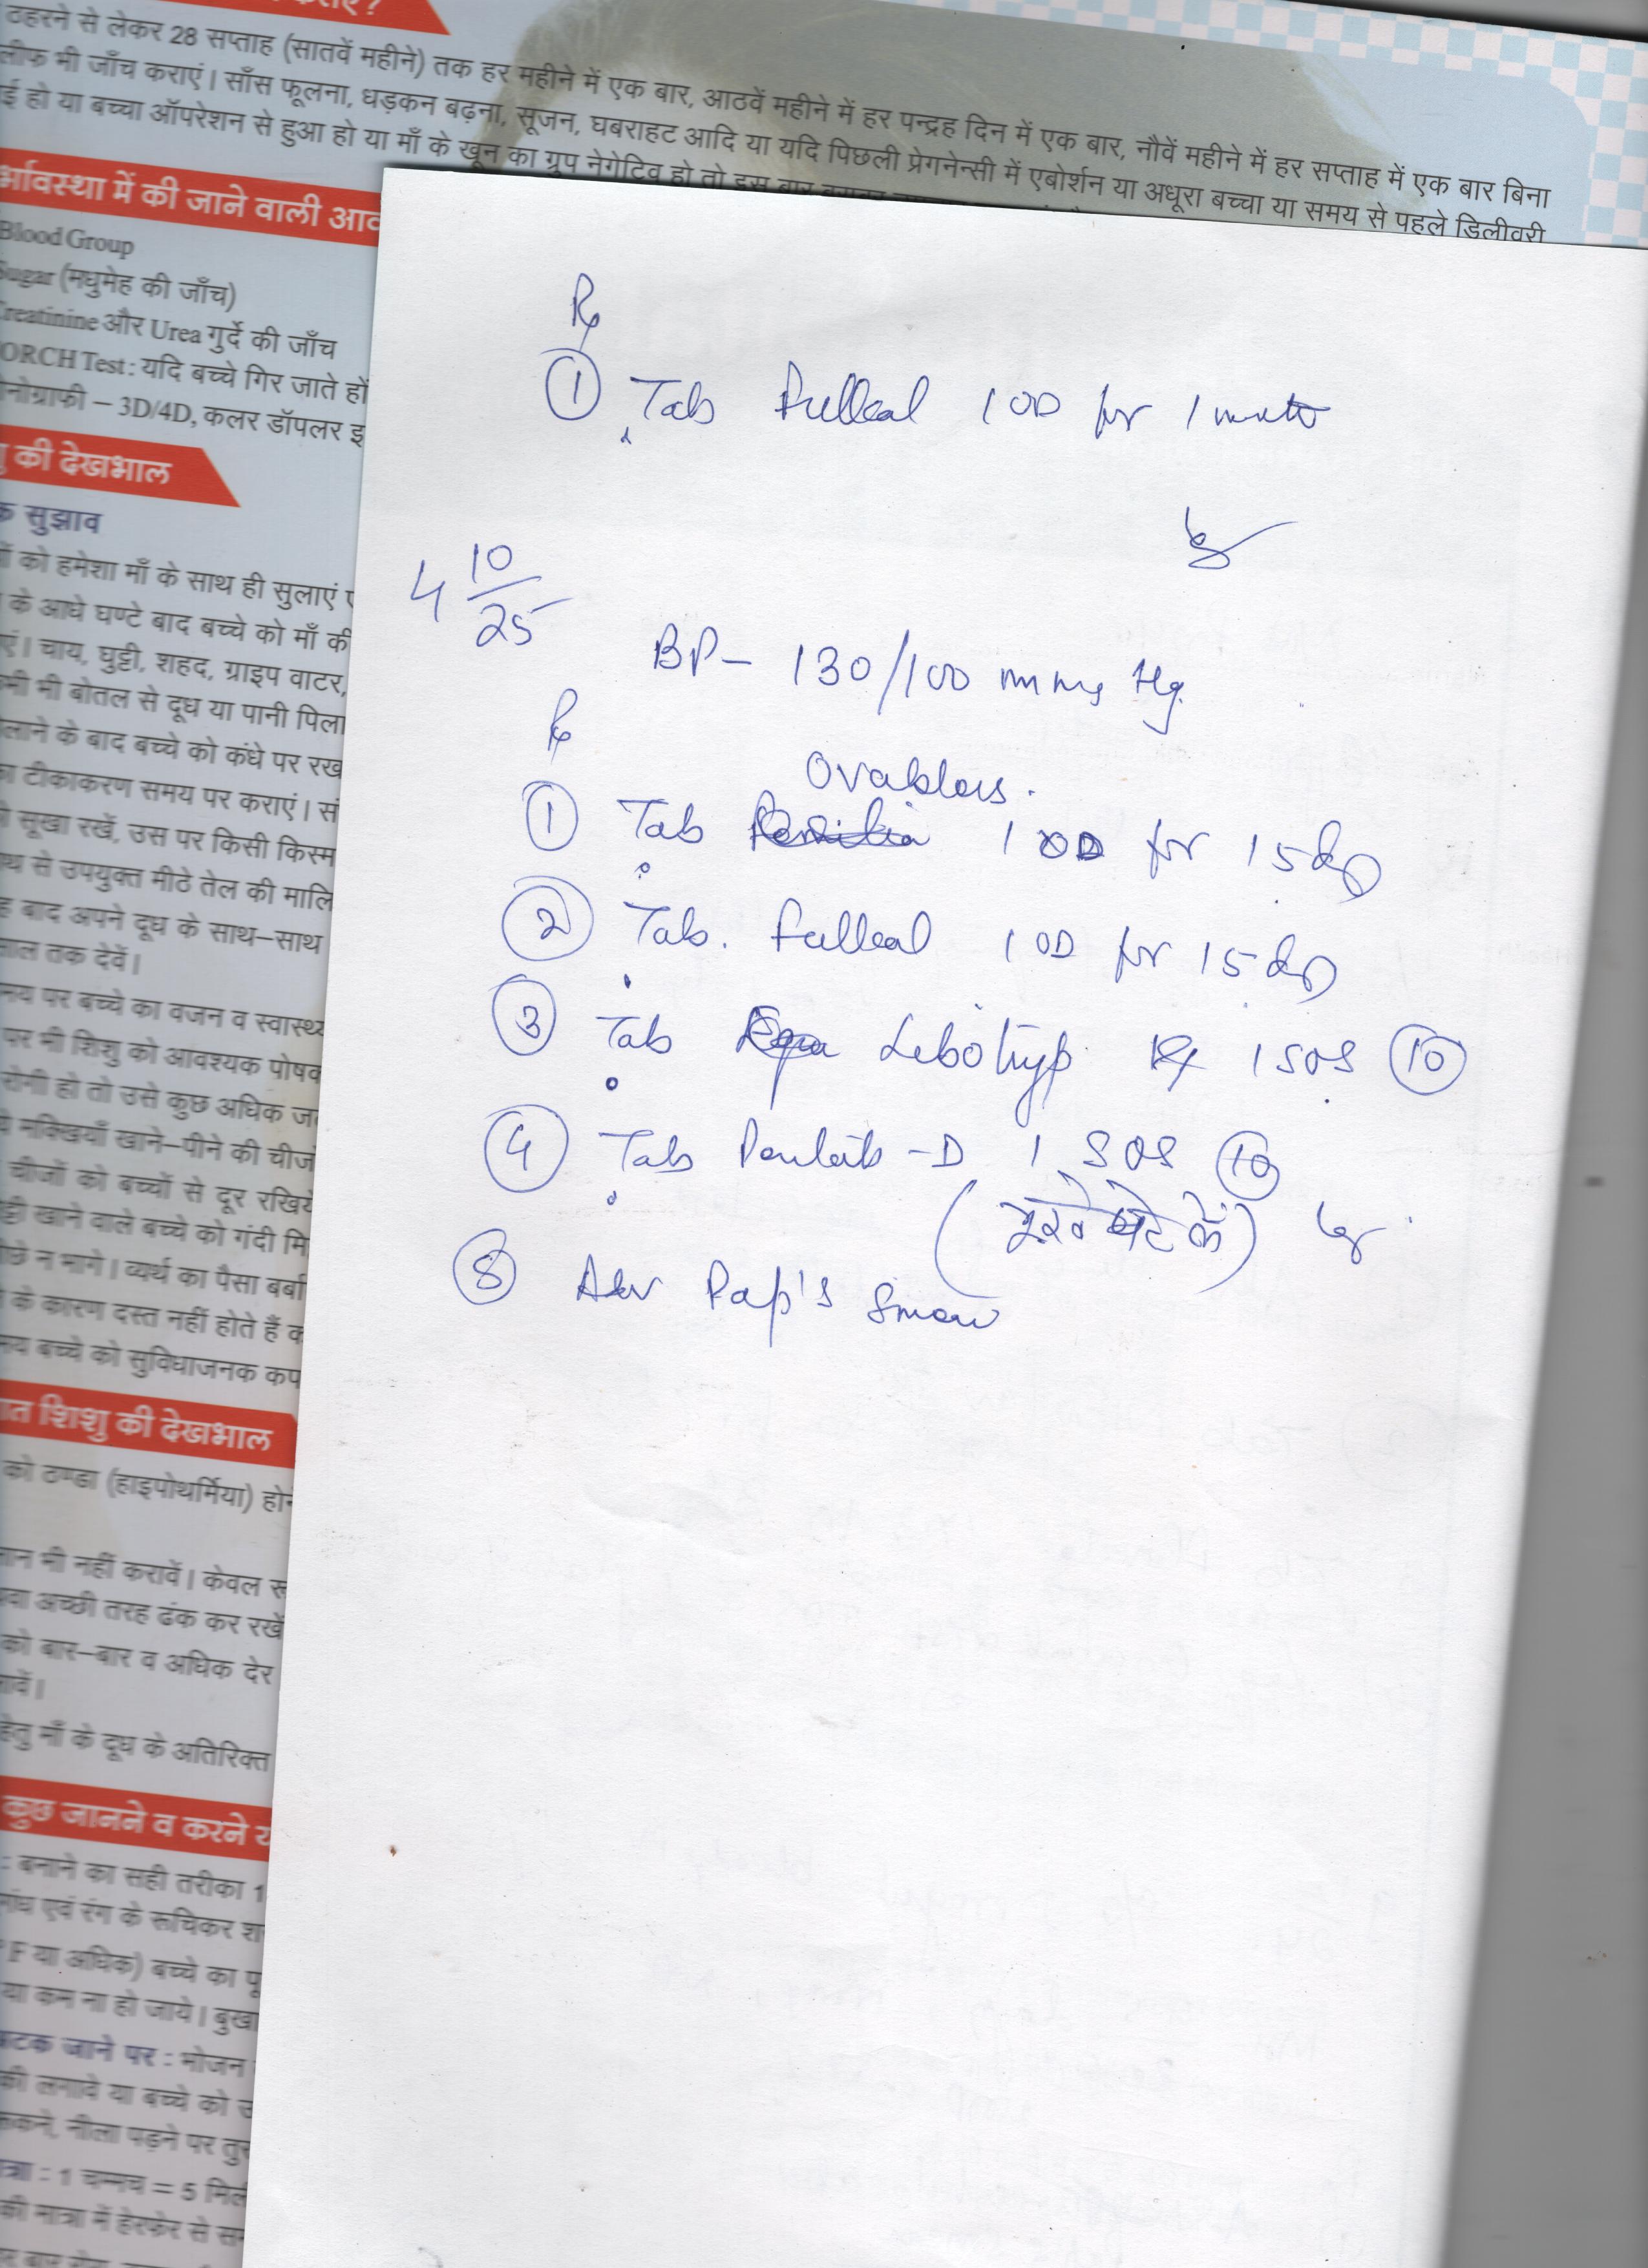 ठहरने से लेकर 28 सप्ताह (सातवें महीने) तक हर महीने में एक बार, आठवें महीने में हर पन्द्रह दिन में एक बार, नौवें महीने में हर सप्ताह में एक बार बिना
लीफ भी जाँच कराएं। साँस फूलना, धड़कन बढ़ना, सूजन, घबराहट आदि या यदि पिछली प्रेगनेन्सी में एबोर्शन या अधूरा बच्चा या समय से पहले डिलीवरी
ई हो या बच्चा ऑपरेशन से हुआ हो या माँ के खून का ग्रुप नेगेटिव हो तो इस बार
र्भावस्था में की जाने वाली आव
Blood Group
Sugar (मधुमेह की जाँच)
Creatinine और Urea गुर्दे की जाँच
ORCH Test : यदि बच्चे गिर जाते हों
नोग्राफी – 3D/4D, कलर डॉपलर इ
ु की देखभाल
क सुझाव
ों को हमेशा माँ के साथ ही सुलाएं ए
के आधे घण्टे बाद बच्चे को माँ की
एं। चाय, घुट्टी, शहद, ग्राइप वाटर,
मी भी बोतल से दूध या पानी पिला
लाने के बाद बच्चे को कंधे पर रख
ा टीकाकरण समय पर कराएं। सं
ो सूखा रखें, उस पर किसी किस्म
ाथ से उपयुक्त मीठे तेल की मालि
ह बाद अपने दूध के साथ–साथ
साल तक देवें।
मय पर बच्चे का वजन व स्वास्थ्य
पर भी शिशु को आवश्यक पोषक
रोगी हो तो उसे कुछ अधिक ज
े मक्खियाँ खाने–पीने की चीजों
चीजों को बच्चों से दूर रखिये
ट्टी खाने वाले बच्चे को गंदी मि
ीछे न भागे। व्यर्थ का पैसा बर्बा
के कारण दस्त नहीं होते हैं क
मय बच्चे को सुविधाजनक कप
ात शिशु की देखभाल
को ठण्डा (हाइपोथर्मिया) होन
ान भी नहीं करावें। केवल रू
थवा अच्छी तरह ढंक कर रखें
को बार–बार व अधिक देर
ावें।
हेतु माँ के दूध के अतिरिक्त
कुछ जानने व करने य
: बनाने का सही तरीका 1
गंध एवं रंग के रूचिकर श
F या अधिक) बच्चे का पू
या कम ना हो जाये। बुखा
अटक जाने पर : भोजन
की लगावे या बच्चे को उ
रूकने, नीला पड़ने पर तुर
ात्रा : 1 चम्मच = 5 मिली
की मात्रा में हेरफेर से स
Rx
1 Tab Fulleal 1 OD for 1 month
4 10/25
BP – 130/100 mm Hg.
Rx
Ovabless.
1 Tab 1 OD for 15 days
2 Tab. Fulleal 1 OD for 15 days
3 Tab Lebotryp 1 SOS 10
4 Tab -D 1 SOS 10
5 Adv Pap's Smear